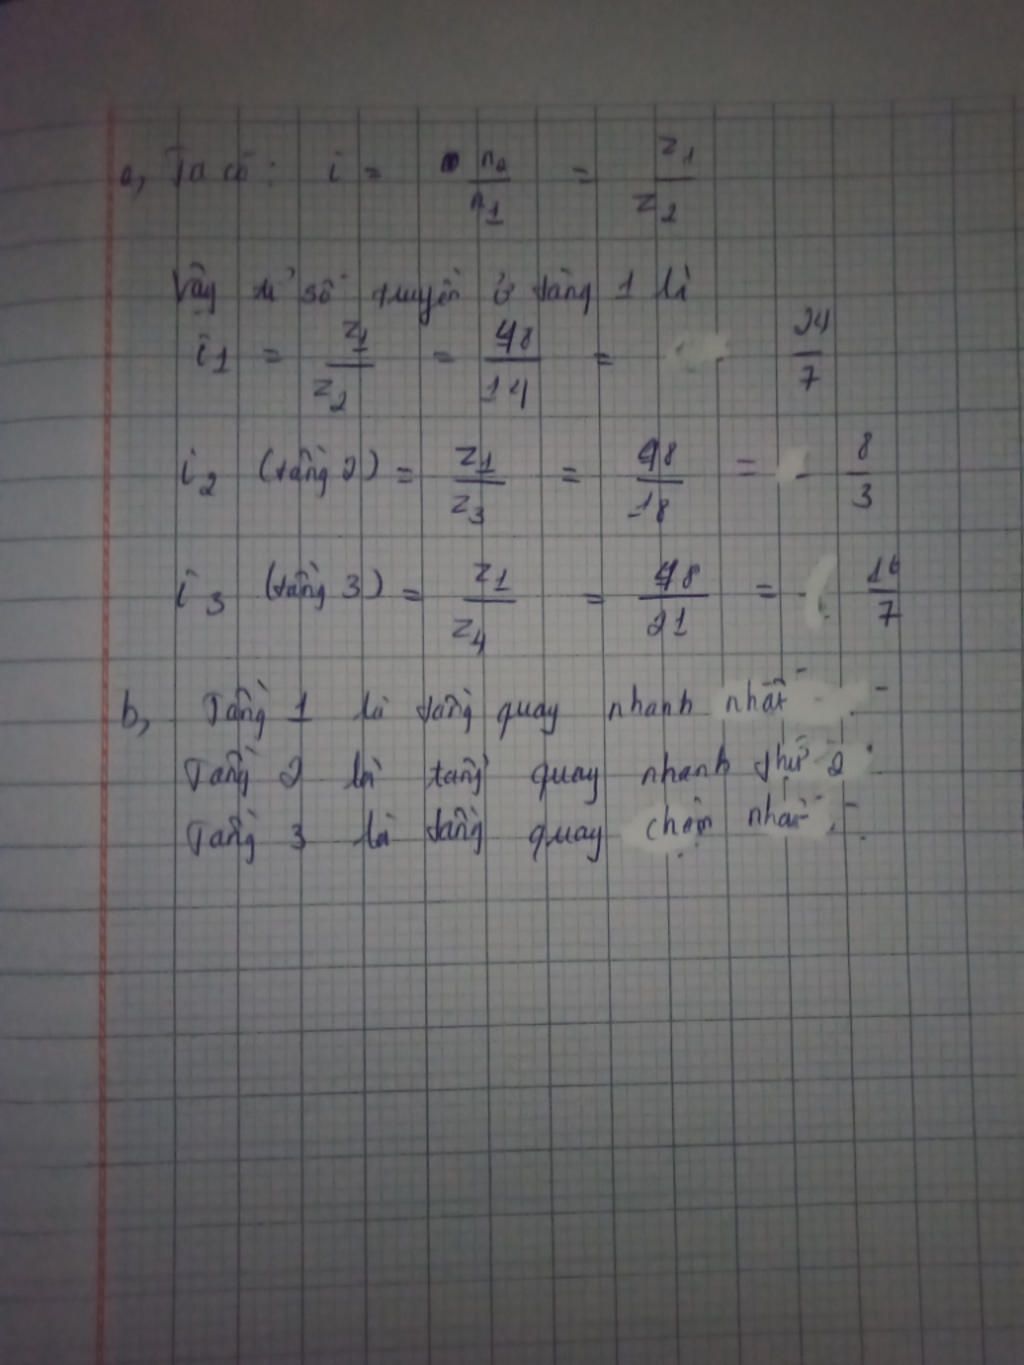 a, Ta có: i = n2/n1 = z1/z2
Vậy tỉ số truyền ở tầng 1 là
i1 = z1/z2 = 48/14 = 24/7
i2 (tầng 2) = z1/z3 = 48/18 = 8/3
i3 (tầng 3) = z1/z4 = 48/21 = 16/7
b, Tầng 1 là tầng quay nhanh nhất
Tầng 2 là tầng quay nhanh thứ 2
Tầng 3 là tầng quay chậm nhất.